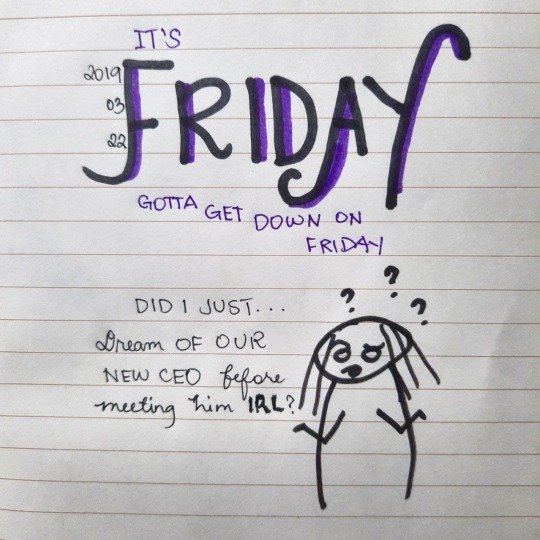 IT'S
2019
03
22
FRIDAY
GOTTA GET DOWN ON
FRIDAY
? ? ?
DID I JUST...
Dream OF OUR
NEW CEO before
meeting him IRL?